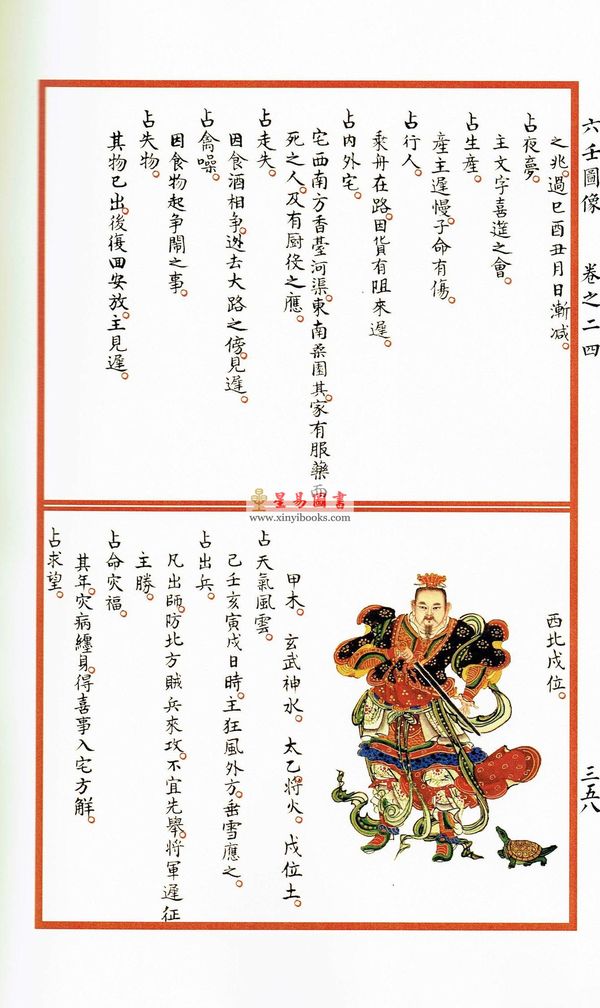 六壬圖像 卷之二四
之兆。過巳酉丑月日漸減。
占夜夢。
主文字喜進之會。
占生産。
產主遲慢。子命有傷。
占行人。
乘舟在路。因貨有阻來遲。
占內外宅。
宅西南方香臺河渠。東南桑園。其家有服藥西
死之人。及有厨役之應。
占走失。
因食酒相爭。逃去大路之傍。見遲。
占禽噪。
因食物起爭鬧之事。
占失物。
其物已出。後復回安放。主見遲。
星易圖書
www.xinyibooks.com
西北戌位。
甲木。玄武神水。太乙將火。戌位土。
占天氣風雲。
己壬亥寅戌日時。主狂風外方。垂雪應之。
占出兵。
凡出師。防北方賊兵來攻。不宜先舉。將軍遲征
主勝。
占命灾福。
其年。灾病纏身。得喜事入宅方解。
占求望。
三五八